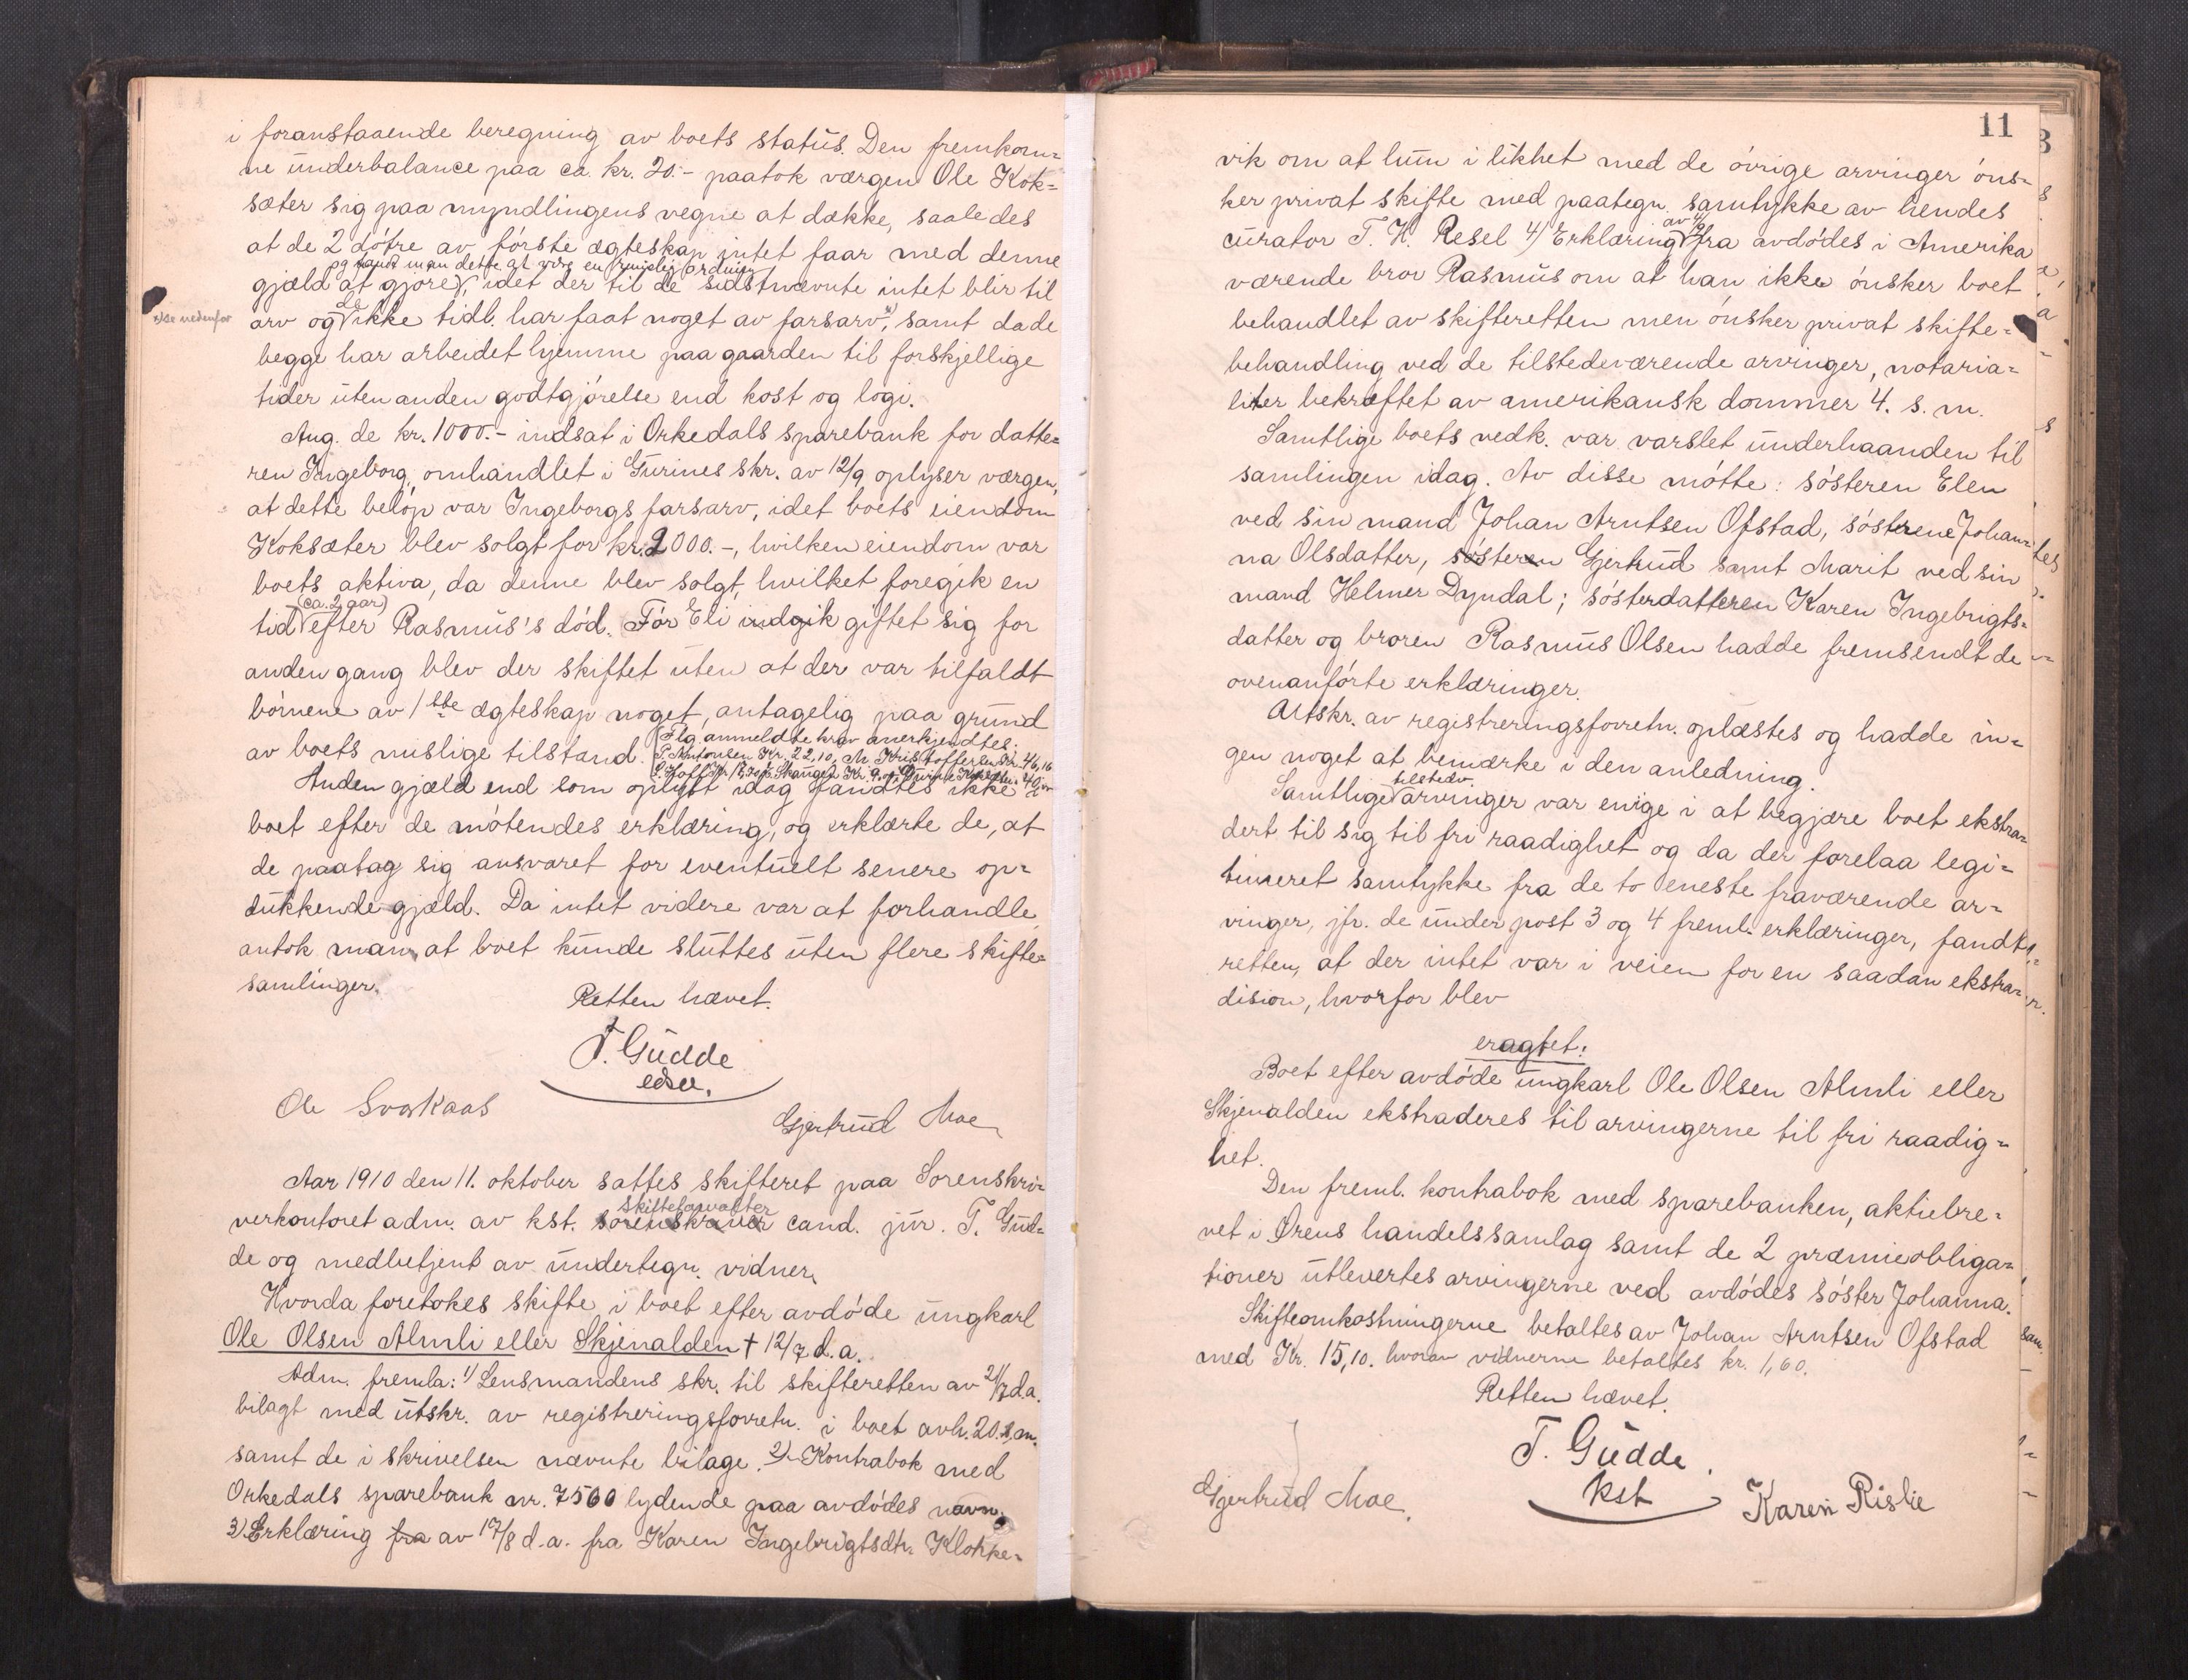 i foranstaaende beregning av boets status. Den fremkom-
ne underbalance paa ca. kr. 20.- paatok værgen Ole Kok-
sæter sig paa myndlingens vegne at dække, saaledes
at de 2 døtre av første ægteskap intet faar med denne
og fandt man dette at være en rimelig ordning
gjæld at gjøre, idet der til de sidstnævnte intet blir til
x) se nedenfor
arv og de ikke tidl. har faat noget av farsarv x), samt da de
begge har arbeidet hjemme paa gaarden til forskjellige
tider uten anden godtgjørelse end kost og logi.
Ang. de kr. 1000.- indsat i Orkedals sparebank for datte-
ren Ingeborg, omhandlet i Gurines skr. av 12/9 oplyser værgen,
at dette beløp var Ingeborgs farsarv, idet boets eiendom
Koksæter blev solgt for kr. 2000.-, hvilken eiendom var
boets aktiva, da denne blev solgt, hvilket foregik en
(ca. 2 aar)
tid efter Rasmus's død. Før Eli indgik giftet sig for
anden gang blev der skiftet uten at der var tilfaldt
børnene av 1ste ægteskap noget, antagelig paa grund
av boets uuslige tilstand. Flg. anmeldte krav anerkjendtes:
P. Antonsen Kr. 22,10, M. Kristoffersen kr. 46,16
Anden gjæld end som oplyst idag fandtes ikke i
boet efter de møtendes erklæring, og erklærte de, at
de paatag sig ansvaret for eventuelt senere op-
dukkende gjæld. Da intet videre var at forhandle,
antok man, at boet kunde sluttes uten flere skifte-
samlinger.
Retten hævet.
T. Gudde
edsv.
Ole Svorkaas
Gjertrud Moe
Aar 1910 den 11. oktober sattes skifteret paa Sorenskri-
skifteforvalter
verkontoret adm. av kst. sorenskriver cand. jur. T. Gud-
de og medbetjent av undertegn. vidner.
Hvorda foretokes skifte i boet efter avdøde ungkarl
Ole Olsen Almli eller Skjenalden † 12/7 d.a.
Adm. fremla: 1) Lensmandens skr. til skifteretten av 21/7 d.a.
bilagt med utskr. av registreringsforretn. i boet avh. 20. s.m.
samt de i skrivelsen nævnte bilage. 2) Kontrabok med
Orkedals sparebank nr. 7560 lydende paa avdødes navn.
3) Erklæring fra av 17/8 d.a. fra Karen Ingebrigtsdtr. Klokke-
11
vik om at hun i likhet med de øvrige arvinger øns-
ker privat skifte med paategn. samtykke av hendes
curator T. H. Resel 4) Erklæring av fra avdødes i Amerika
værende bror Rasmus om at han ikke ønsker boet
behandlet av skifteretten men ønsker privat skifte-
behandling ved de tilstedeværende arvinger, notaria-
liter bekræftet av amerikansk dommer 4. s. m.
Samtlige boets vedk. var varslet underhaanden til
samlingen idag. Av disse møtte: søsteren Elen
ved sin mand Johan Arntsen Ofstad, søstrene Johan-
na Olsdatter, søsteren Gjertrud samt Marit ved sin
mand Helmer Dyndal; søsterdatteren Karen Ingebrigts-
datter og broren Rasmus Olsen hadde fremsendt de
ovenanførte erklæringer.
Utskr. av registreringsforretn. oplæstes og hadde in-
gen noget at bemærke i den anledning.
tilstedev.
Samtlige arvinger var enige i at begjære boet ekstra-
dert til sig til fri raadighet og da der forelaa legi-
timeret samtykke fra de to eneste fraværende ar-
vinger, jfr. de under post 3 og 4 freml. erklæringer, fandt
retten, at der intet var i veien for en saadan ekstra-
dision, hvorfor blev
eragtet:
Boet efter avdøde ungkarl Ole Olsen Almli eller
Skjenalden ekstraderes til arvingerne til fri raadig-
het.
Den freml. kontrabok med sparebanken, aktiebre-
vet i Ørens handelssamlag samt de 2 præmieobliga-
tioner utlevertes arvingerne ved avdødes søster Johanna.
Skifteomkostningerne betaltes av Johan Arntsen Ofstad
med Kr. 15,10. hvorav vidnerne betaltes kr. 1,60.
Retten hævet.
T. Gudde
kst
Gjertrud Moe.
Karen Rislie